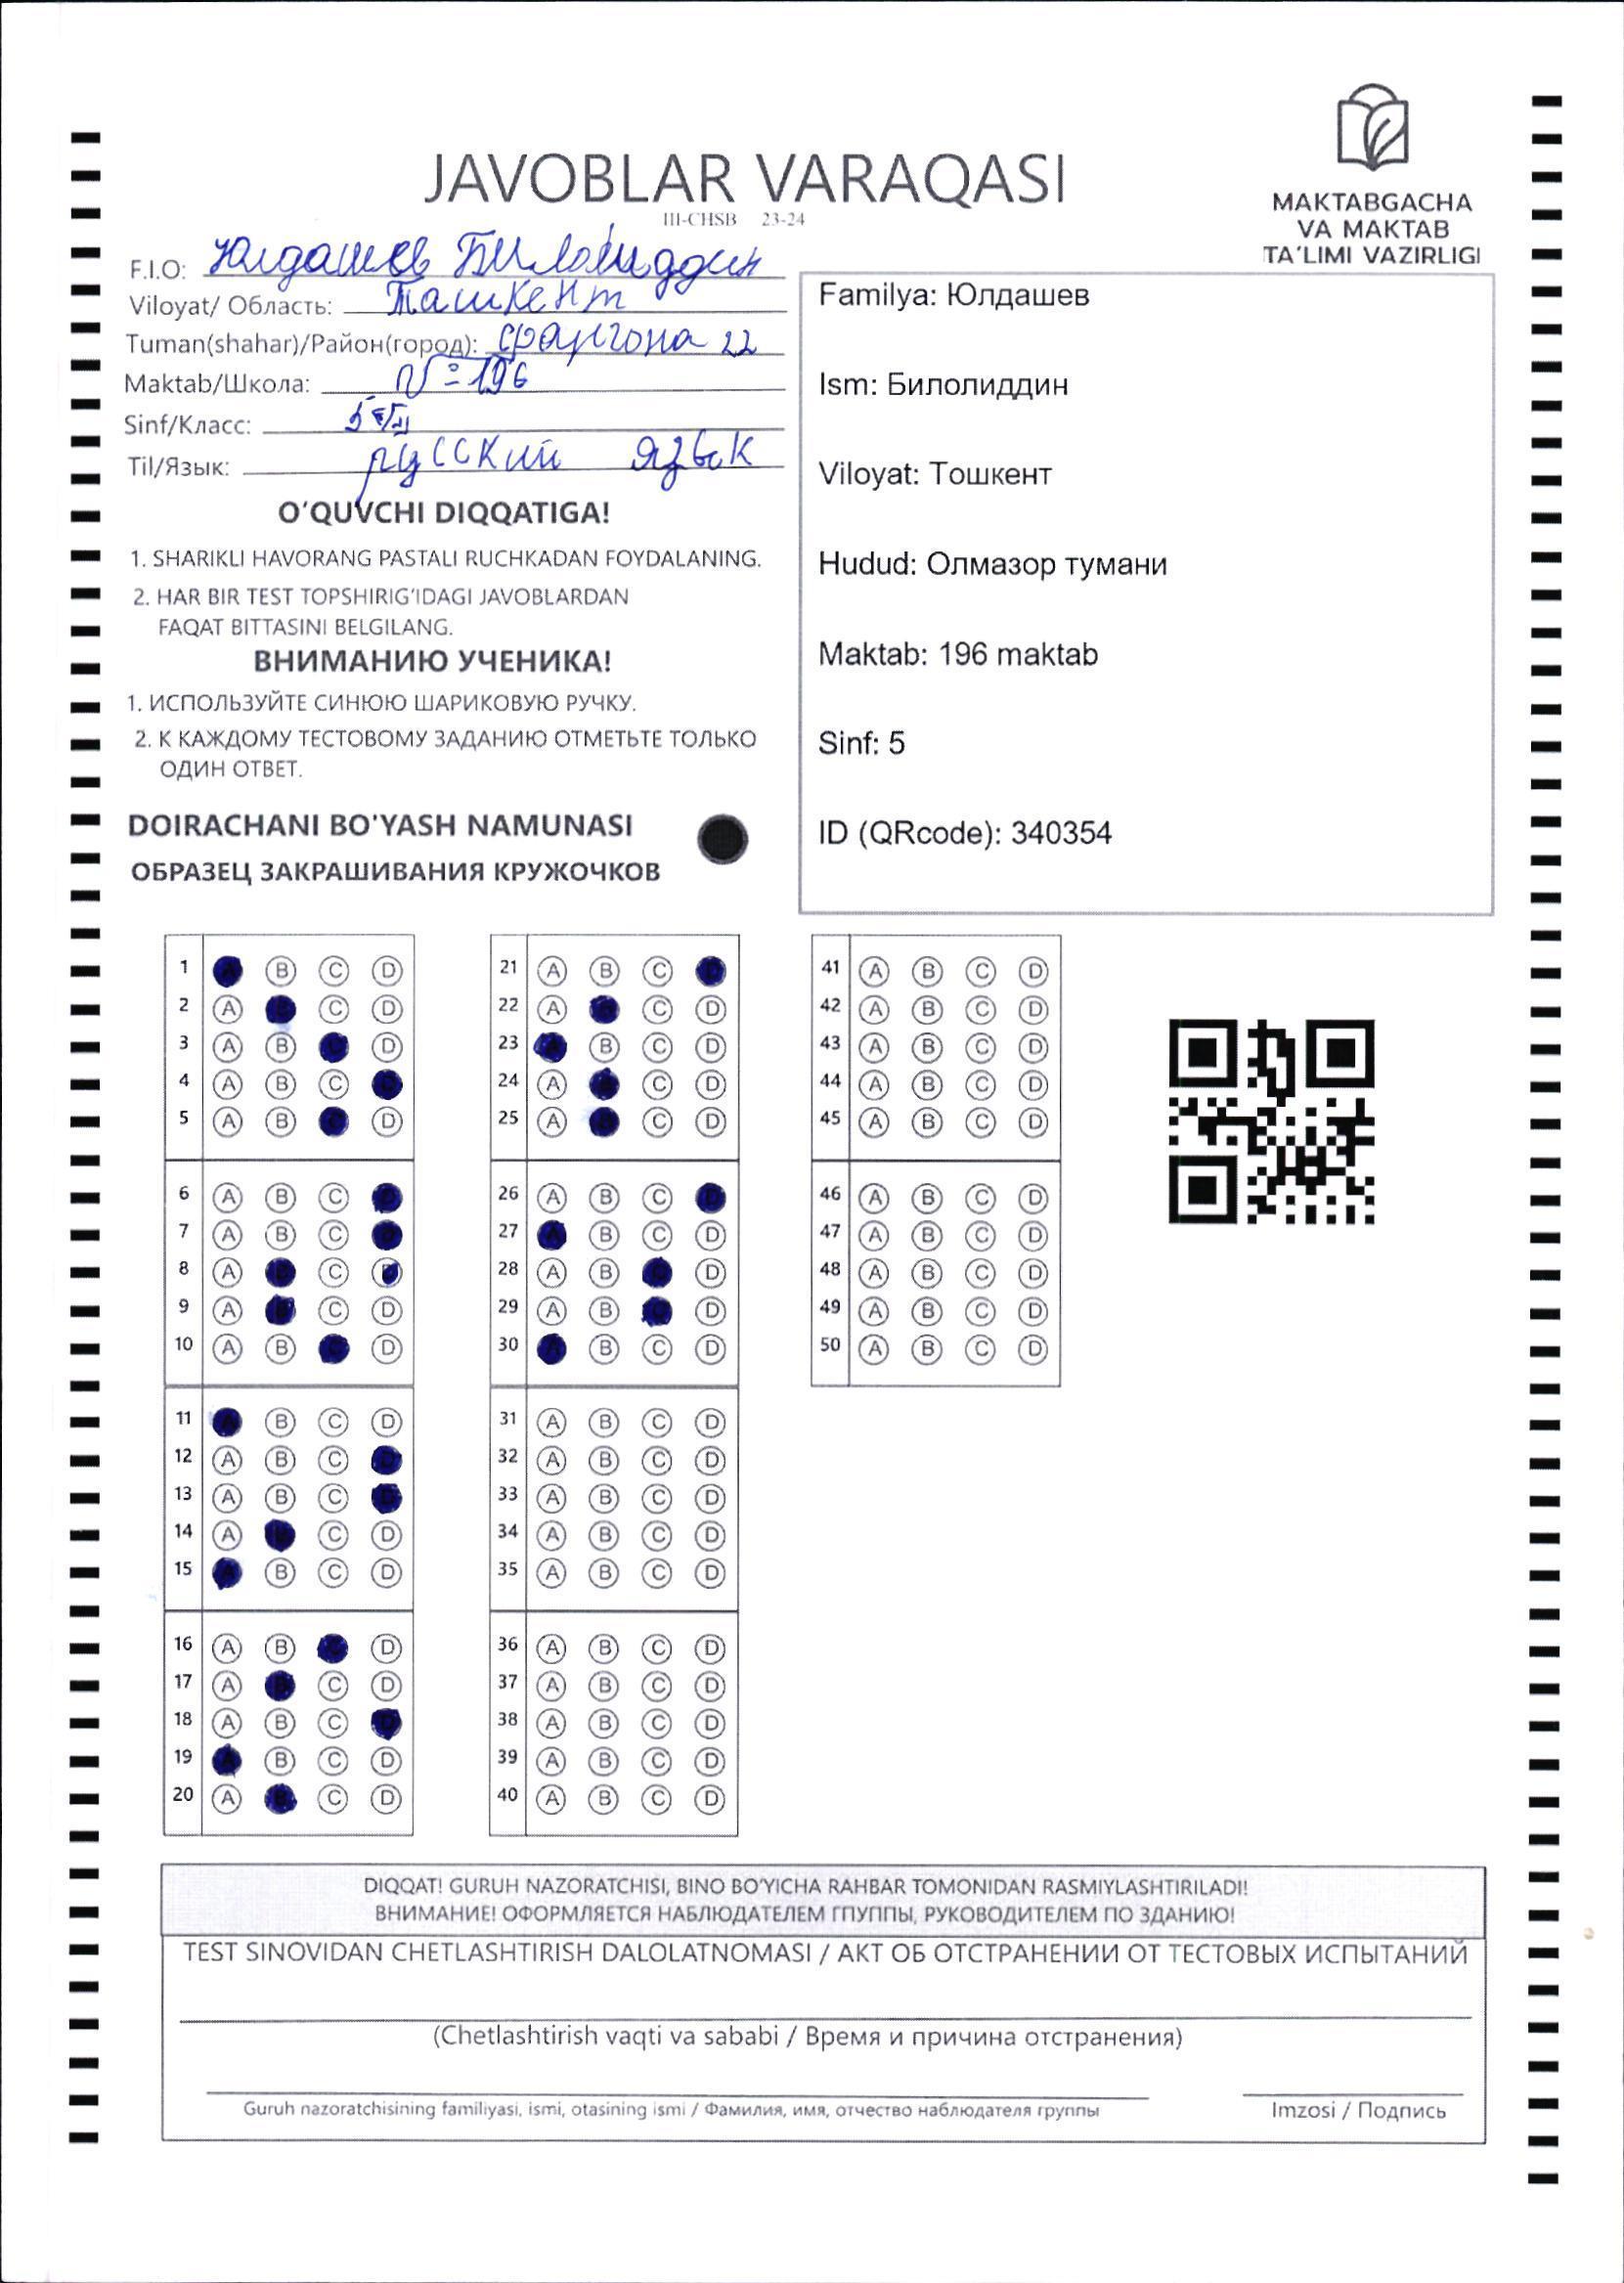 JAVOBLAR VARAQASI
III-CHSB 23-24
MAKTABGACHA
VA MAKTAB
TA'LIMI VAZIRLIGI
F.I.O: Юлдашев Билолиддин
Viloyat/ Область: Ташкент
Tuman(shahar)/Район(город): 22
Maktab/Школа: №196
Sinf/Класс: 5
Til/Язык: русский язык
O'QUVCHI DIQQATIGA!
1. SHARIKLI HAVORANG PASTALI RUCHKADAN FOYDALANING.
2. HAR BIR TEST TOPSHIRIG'IDAGI JAVOBLARDAN
FAQAT BITTASINI BELGILANG.
ВНИМАНИЮ УЧЕНИКА!
1. ИСПОЛЬЗУЙТЕ СИНЮЮ ШАРИКОВУЮ РУЧКУ.
2. К КАЖДОМУ ТЕСТОВОМУ ЗАДАНИЮ ОТМЕТЬТЕ ТОЛЬКО
ОДИН ОТВЕТ.
DOIRACHANI BO'YASH NAMUNASI
ОБРАЗЕЦ ЗАКРАШИВАНИЯ КРУЖОЧКОВ
Familya: Юлдашев
Ism: Билолиддин
Viloyat: Тошкент
Hudud: Олмазор тумани
Maktab: 196 maktab
Sinf: 5
ID (QRcode): 340354
1 A B C D
2 A B C D
3 A B C D
4 A B C D
5 A B C D
6 A B C D
7 A B C D
8 A B C D
9 A B C D
10 A B C D
11 A B C D
12 A B C D
13 A B C D
14 A B C D
15 A B C D
16 A B C D
17 A B C D
18 A B C D
19 A B C D
20 A B C D
21 A B C D
22 A B C D
23 A B C D
24 A B C D
25 A B C D
26 A B C D
27 A B C D
28 A B C D
29 A B C D
30 A B C D
31 A B C D
32 A B C D
33 A B C D
34 A B C D
35 A B C D
36 A B C D
37 A B C D
38 A B C D
39 A B C D
40 A B C D
41 A B C D
42 A B C D
43 A B C D
44 A B C D
45 A B C D
46 A B C D
47 A B C D
48 A B C D
49 A B C D
50 A B C D
DIQQAT! GURUH NAZORATCHISI, BINO BO'YICHA RAHBAR TOMONIDAN RASMIYLASHTIRILADI!
ВНИМАНИЕ! ОФОРМЛЯЕТСЯ НАБЛЮДАТЕЛЕМ ГПУППЫ, РУКОВОДИТЕЛЕМ ПО ЗДАНИЮ!
TEST SINOVIDAN CHETLASHTIRISH DALOLATNOMASI / АКТ ОБ ОТСТРАНЕНИИ ОТ ТЕСТОВЫХ ИСПЫТАНИЙ
(Chetlashtirish vaqti va sababi / Время и причина отстранения)
Guruh nazoratchisining familiyasi, ismi, otasining ismi / Фамилия, имя, отчество наблюдателя группы
Imzosi / Подпись